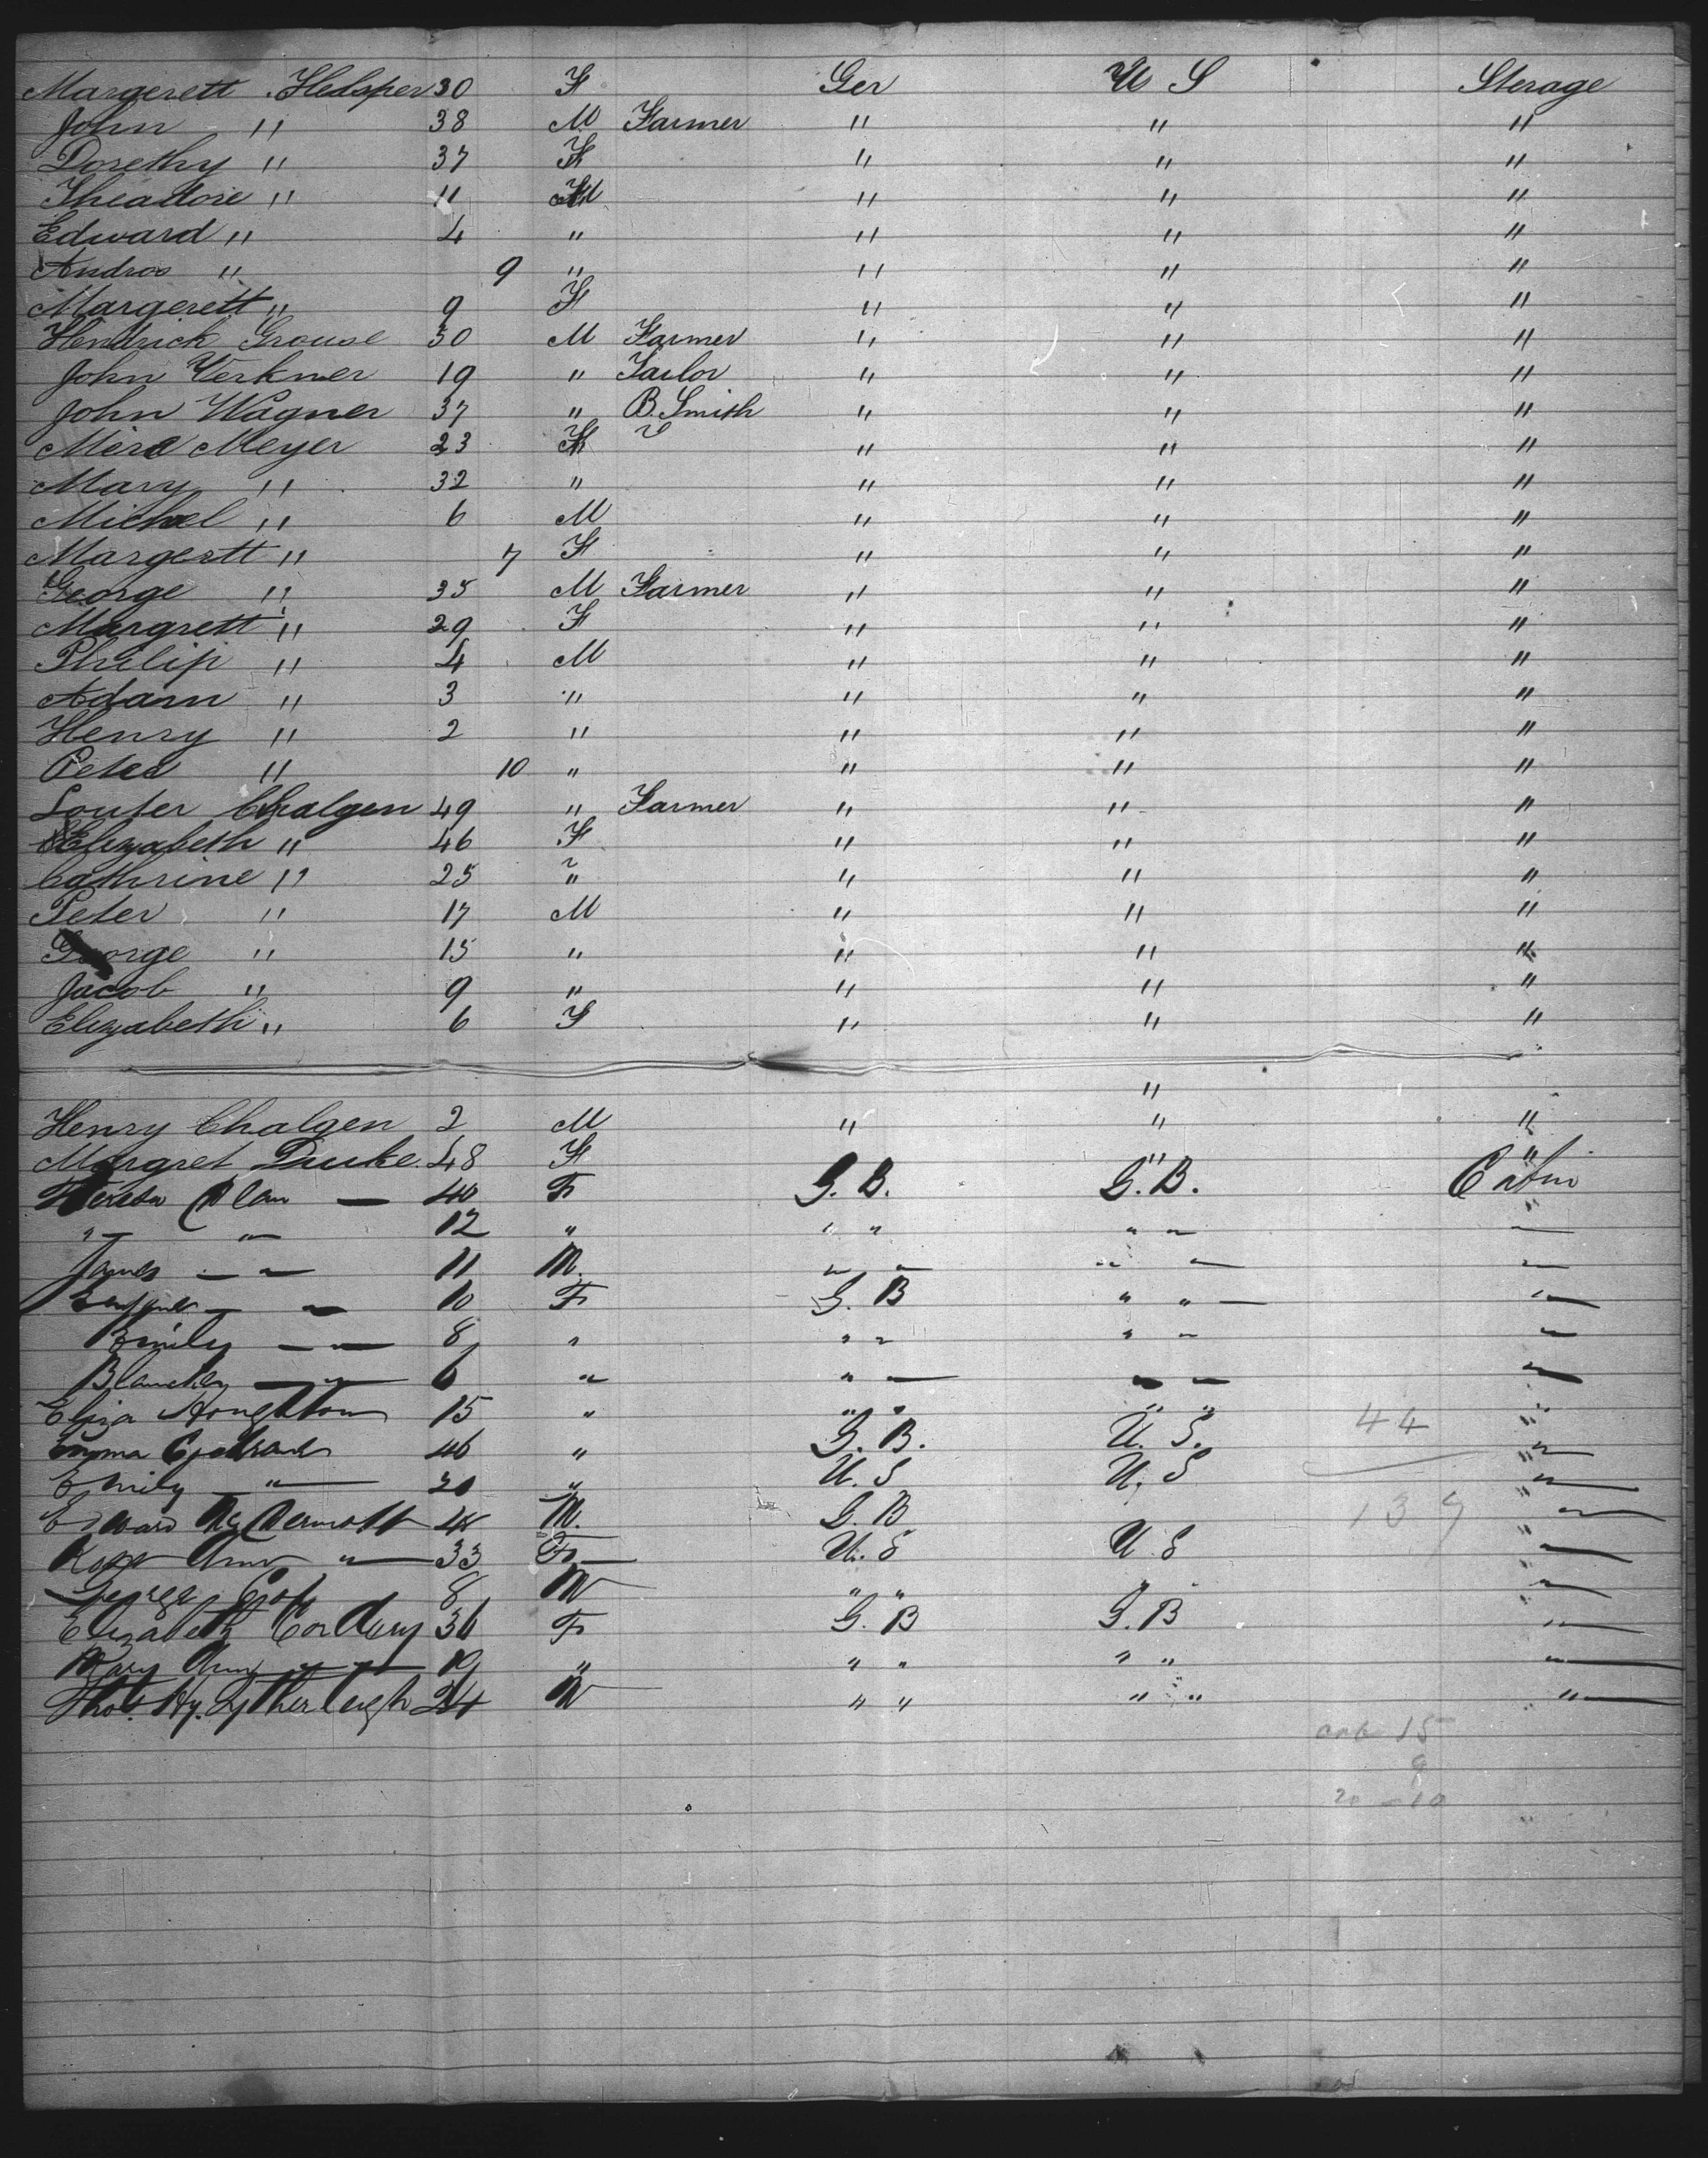 Margerett Helsper 30 F Ger U S Sterage
John " 38 M Farmer " " "
Dorethy " 37 F " " "
Theadore " 11 M " " "
Edward " 4 " " " "
Andros " 9 " " " "
Margerett " 9 F " " "
Hendrick Grouse 30 M Farmer " " "
John Verkner 19 " Tailor " " "
John Wagner 37 " B. Smith " " "
Mera Meyer 23 F " " "
Mary " 32 " " " "
Michael " 6 M " " "
Margertt " 7 F " " "
George " 35 M Farmer " " "
Margrett " 29 F " " "
Philip " 4 M " " "
Adam " 3 " " " "
Henry " 2 " " " "
Peter " 10 " " " "
Louter Chalgen 49 " Farmer " " "
Elizabeth " 46 F " " "
Cathrine " 25 " " " "
Peter " 17 M " " "
George " 15 " " " "
Jacob " 9 " " " "
Elizabeth " 6 F " " "
"
Henry Chalgen 2 M " " "
Margret Duke 48 F " "
Teresa Clan 40 F G. B. G. B. Cabin
" " 12 " " " " " "
James " 11 M. " " " " "
" 10 F G. B " " "
Emily " 8 " " " " " "
" 6 " " " "
Eliza Houghton 15 " " " " " " 44
Emma 46 " G. B. U. S. "
Emily " 20 " U. S U. S "
Edward McDermott M. G. B 139 "
Ann " 33 F U. S U. S "
George 8 M " " " "
Elizabeth Cordury 36 F G. B G. B "
Mary Ann " 19 " " " " " "
Thos. Hy. 24 M " " " " "
cab 15
9
20 - 10